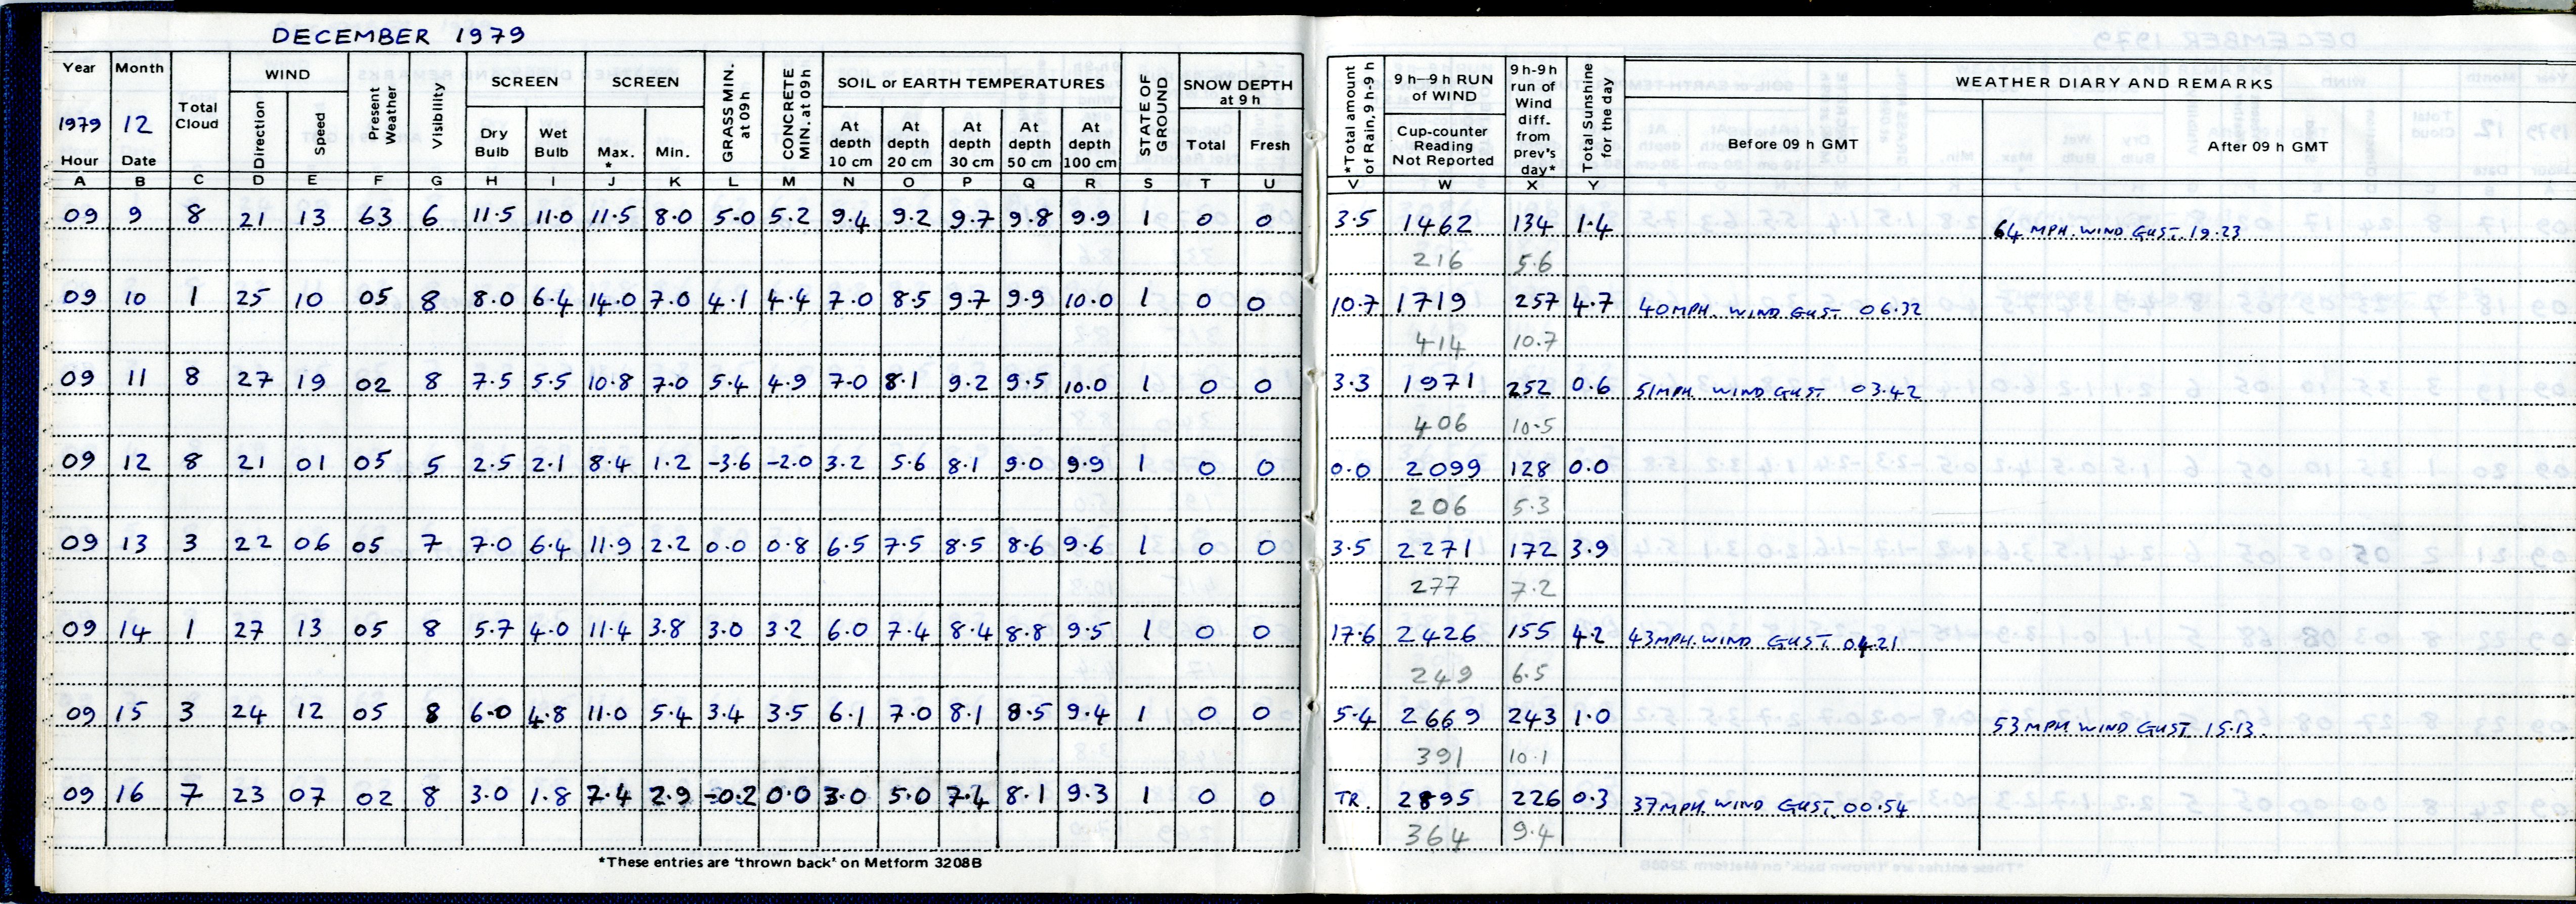 DECEMBER 1979
Year Month Total Cloud WIND Present Weather Visibility SCREEN SCREEN GRASS MIN. at 09h CONCRETE MIN. at 09h SOIL or EARTH TEMPERATURES STATE OF GROUND SNOW DEPTH at 9 h *Total amount of Rain, 9h-9h 9 h–9 h RUN of WIND 9h-9h run of Wind diff. from prev's day* Total Sunshine for the day WEATHER DIARY AND REMARKS
1979 12 Direction Speed Dry Bulb Wet Bulb Max.* Min. At depth 10 cm At depth 20 cm At depth 30 cm At depth 50 cm At depth 100 cm Total Fresh Cup-counter Reading Not Reported Before 09 h GMT After 09 h GMT
Hour Date
A B C D E F G H I J K L M N O P Q R S T U V W X Y
09 9 8 21 13 63 6 11.5 11.0 11.5 8.0 5.0 5.2 9.4 9.2 9.7 9.8 9.9 1 0 0 3.5 1462 134 1.4 64 MPH. WIND GUST. 19.23
216 5.6
09 10 1 25 10 05 8 8.0 6.4 14.0 7.0 4.1 4.4 7.0 8.5 9.7 9.9 10.0 1 0 0 10.7 1719 257 4.7 40MPH. WIND GUST 06.32
414 10.7
09 11 8 27 19 02 8 7.5 5.5 10.8 7.0 5.4 4.9 7.0 8.1 9.2 9.5 10.0 1 0 0 3.3 1971 252 0.6 51MPH. WIND GUST 03.42
406 10.5
09 12 8 21 01 05 5 2.5 2.1 8.4 1.2 -3.6 -2.0 3.2 5.6 8.1 9.0 9.9 1 0 0 0.0 2099 128 0.0
206 5.3
09 13 3 22 06 05 7 7.0 6.4 11.9 2.2 0.0 0.8 6.5 7.5 8.5 8.6 9.6 1 0 0 3.5 2271 172 3.9
277 7.2
09 14 1 27 13 05 8 5.7 4.0 11.4 3.8 3.0 3.2 6.0 7.4 8.4 8.8 9.5 1 0 0 17.6 2426 155 4.2 43MPH. WIND GUST. 04.21
249 6.5
09 15 3 24 12 05 8 6.0 4.8 11.0 5.4 3.4 3.5 6.1 7.0 8.1 8.5 9.4 1 0 0 5.4 2669 243 1.0 53MPH. WIND GUST 15.13.
391 10.1
09 16 7 23 07 02 8 3.0 1.8 7.4 2.9 -0.2 0.0 3.0 5.0 7.4 8.1 9.3 1 0 0 TR. 2895 226 0.3 37MPH. WIND GUST. 00.54
364 9.4
*These entries are 'thrown back' on Metform 3208B